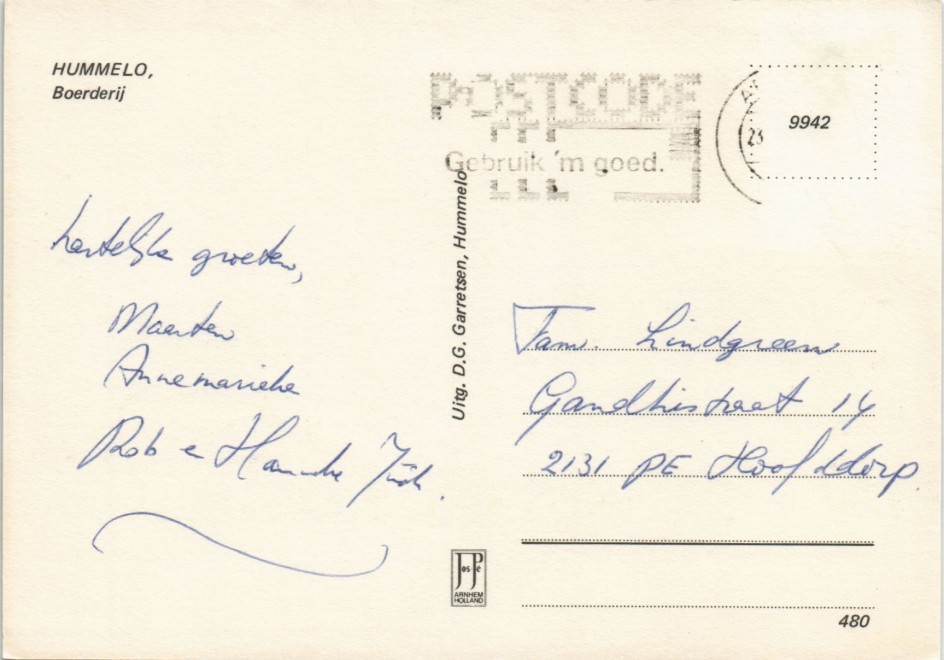 HUMMELO,
Boerderij
POSTCODE
Gebruik 'm goed.
23
9942
hartelijke groeten,
Maarten
Annemarieke
Rob en Hanneke
Uitg. D.G. Garretsen, Hummelo
Fam. Lindgreen
Gandhistraat 14
2131 PE Hoofddorp
JosPé
ARNHEM
HOLLAND
480